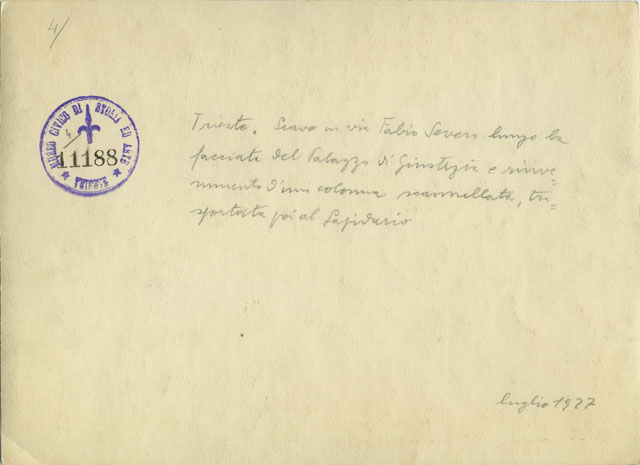 4/
MUSEO CIVICO DI STORIA ED ARTE
4
11188
TRIESTE
Trieste. Scavo in via Fabio Severo lungo la
facciata del Palazzo di Giustizia e rinve=
nimento d'una colonna scannellata, tra=
sportata poi al Lapidario
luglio 1927